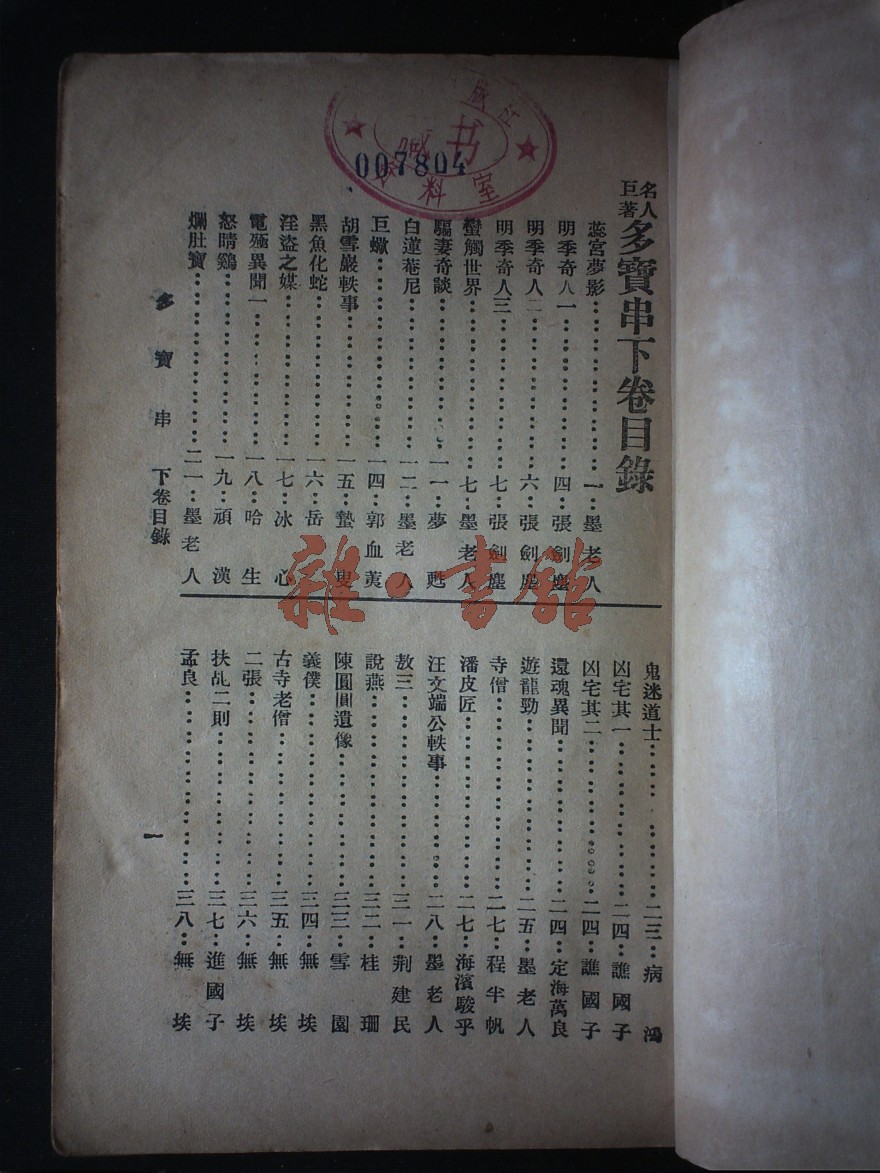 名人巨著 多寶串下卷目錄
蕊宮夢影……一…墨老人
明季奇人一……四…張劍塵
明季奇人二……六…張劍塵
明季奇人三……七…張劍塵
蠻觸世界……七…墨老人
騙妻奇談……一一…夢甦
白蓮菴尼……一二…墨老人
巨蠍……一四…郭血荑
胡雪巖軼事……一五…蟄叟
黑魚化蛇……一六…岳
淫盜之媒……一七…冰心
電殛異聞一……一八…哈生
怒睛鷄……一九…頑漢
爛肚寶……二一…墨老人
鬼迷道士……二三…病鴻
凶宅其一……二四…譙國子
凶宅其二……二四…譙國子
還魂異聞……二四…定海萬良
遊龍勁……二五…墨老人
寺僧……二七…程半帆
潘皮匠……二七…海濱駿乎
汪文端公軼事……二八…墨老人
敖三……三一…荆建民
說燕……三二…桂珊
陳圓圓遺像……三三…雪園
義僕……三四…無埃
古寺老僧……三五…無埃
二張……三六…無埃
扶乩二則……三七…進國子
孟良……三八…無埃
多寶串 下卷目錄
一
书
料室
007804
雜·書館